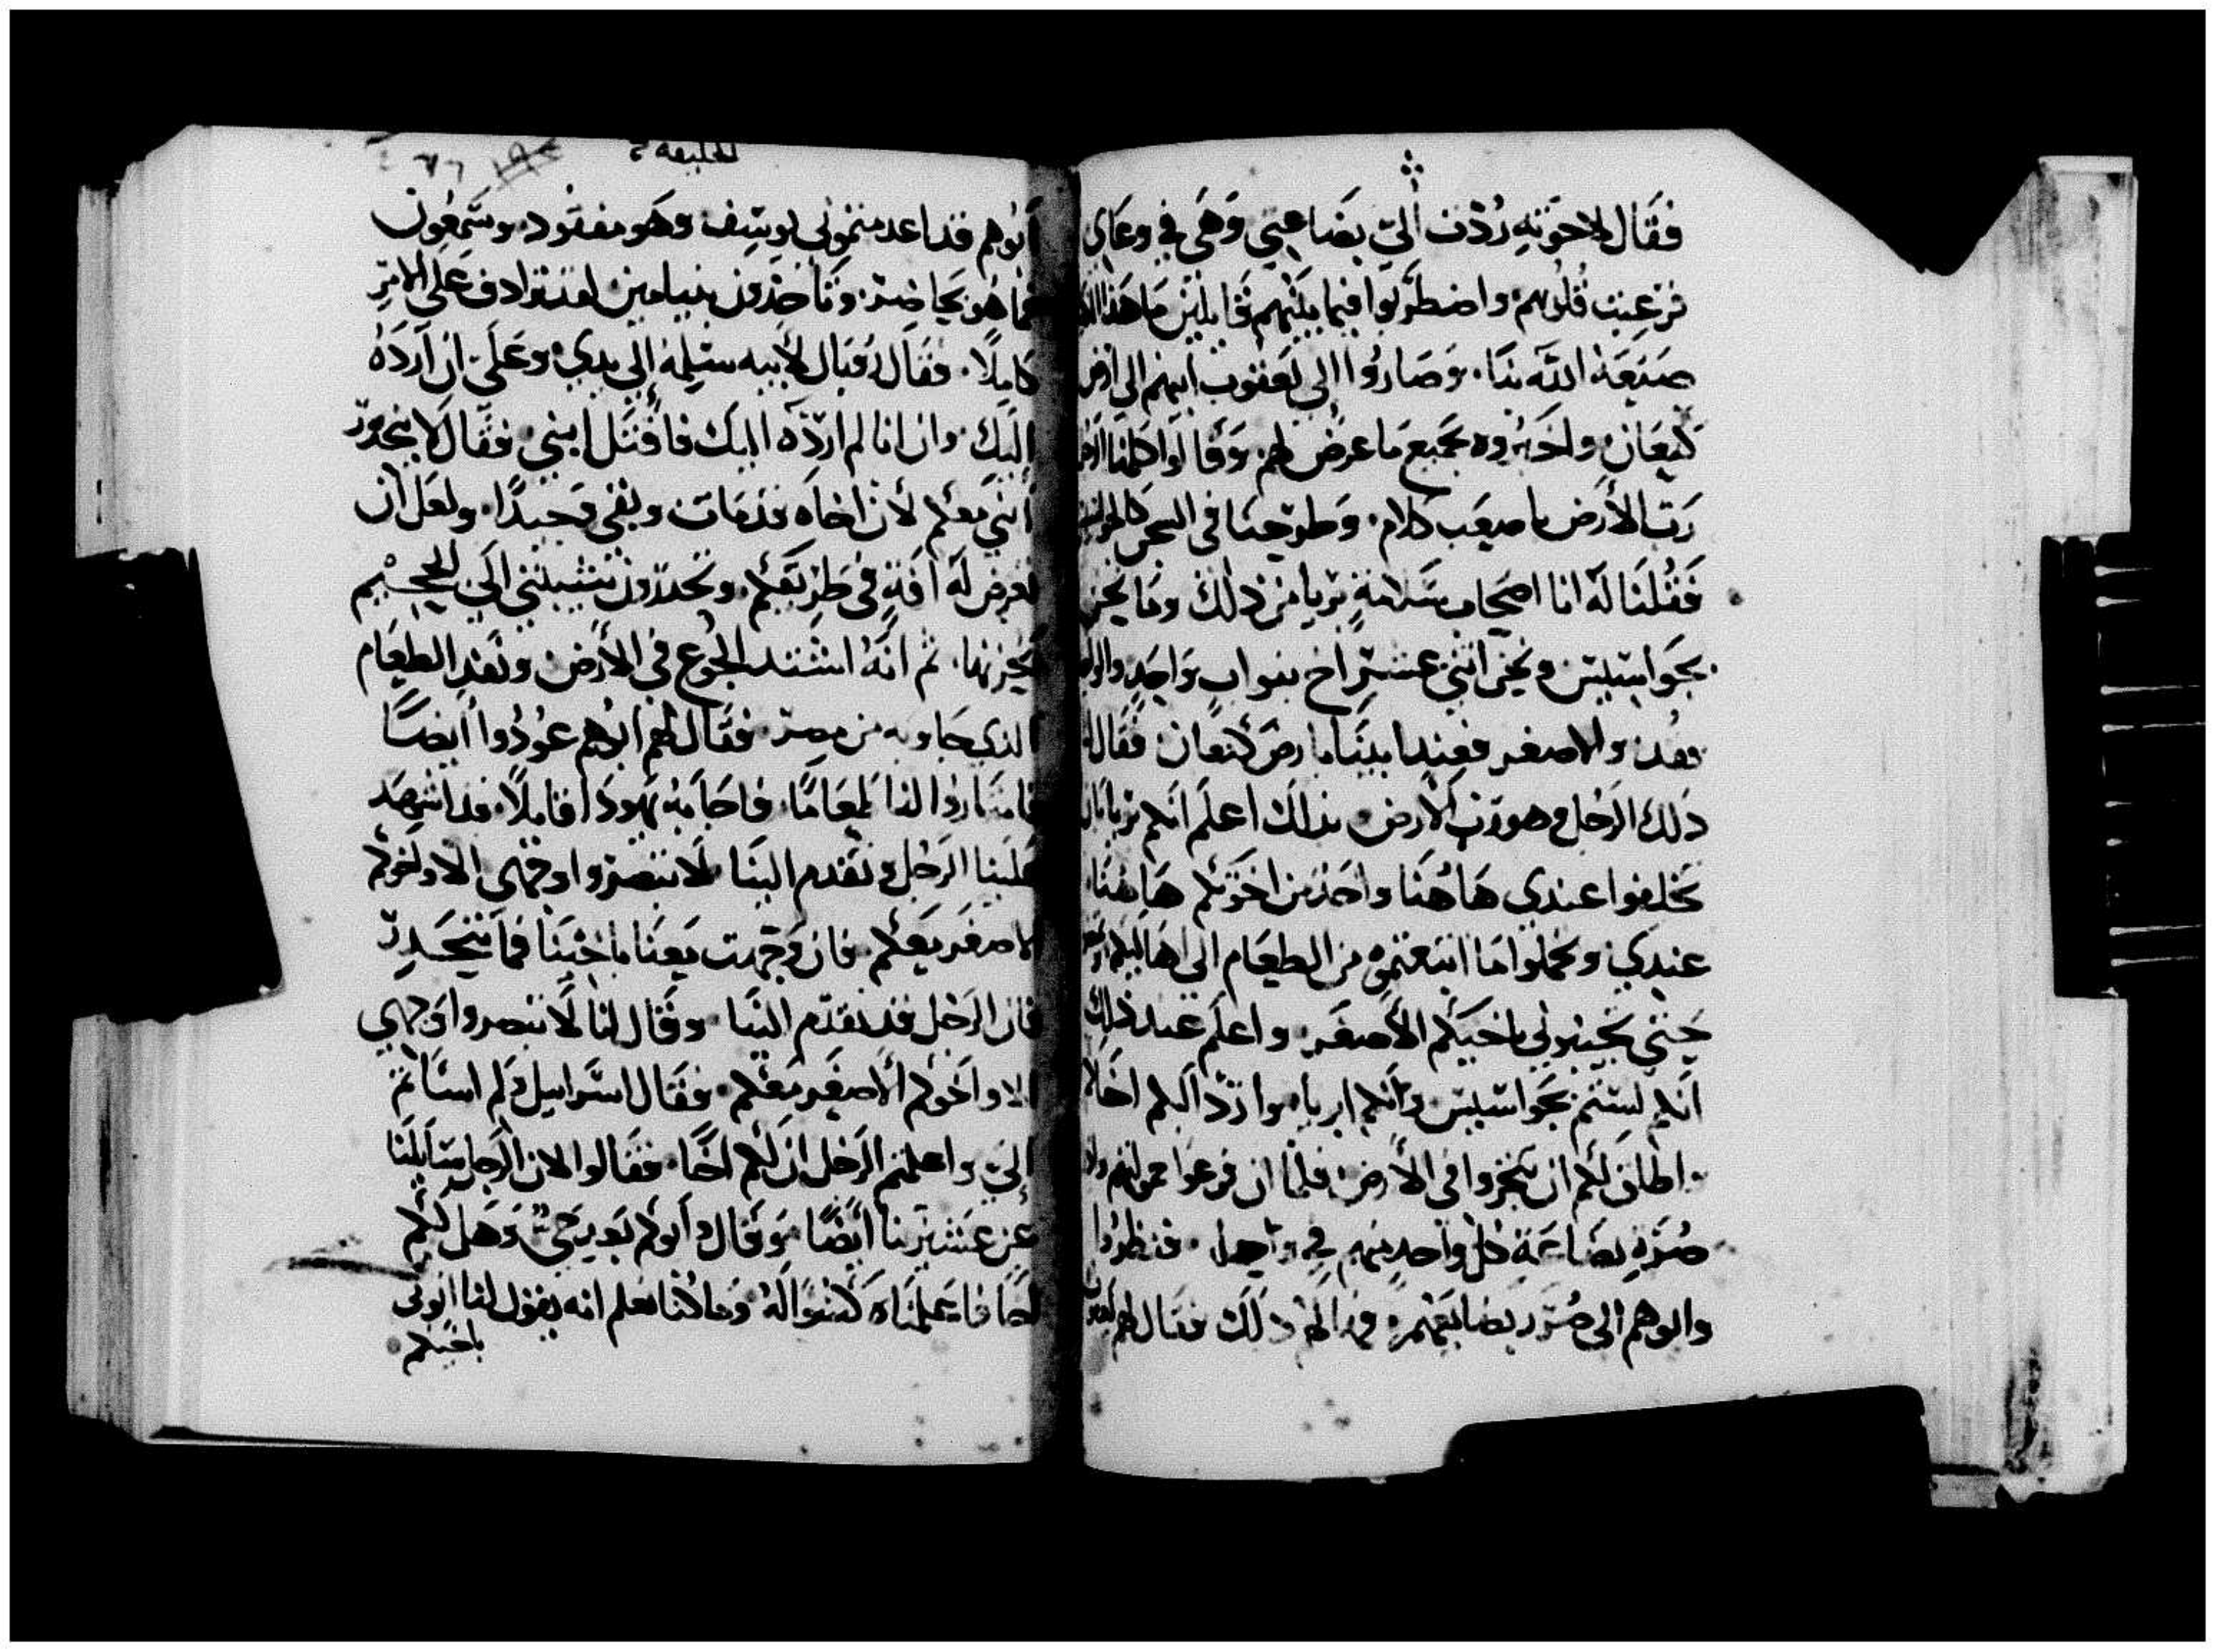 فقال لاخوته رُدّت اليّ بضاعتي وهي في وعاي
فرعبت قلوبهم واضطربوا فيما بينهم قايلين ما هذا الذي
صنعه الله بنا. وصاروا الى يعقوب ابيهم الى ارض
كنعان واخبروه بجميع ما عرض لهم وقالوا كلمنا الرجل
رب الأرض باصعب كلام. وطرحنا في السجن كالجواسيس
فقلنا له انا اصحاب سلامة بريا من ذلك وما نحن
بجواسيس ونحن اثني عشر اخ بنواب واحد والواحد
فقد والاصغر فعند ابينا بارض كنعان فقال لنا
ذلك الرجل وهو رب الارض بذلك اعلم انكم بريا بان
تخلفوا عندي هاهنا واحد من اخوتكم هاهنا
عندي وتحملوا ما ابتعتموه من الطعام الى اهاليكم
حتى تجيبوني باخيكم الأصغر واعلم عند ذلك
انكم لستم بجواسيس وانكم ابريا. وارد اليكم اخاكم
واطلق لكم ان تتجروا في الأرض فلما ان فرغوا
صُرة بضاعة كل واحد منهم في وعا. فنظروا
وابوهم الى صُرر بضايعهم ذلك فقال لهم يعقوب
الخليقة
٦٦
ابوهم قد اعدمتموني يوسف وهو مفقود. وسمعون
فما هو بحاضر. وتاخذون بنيامين لقد ترادف علي الامر
كاملا. فقال رُفبال لأبيه سلمه الى يدي وعلي ان اردهُ
اليك وان انا لم اردّه اليك فاقتل ابنيّ فقال لا ينحدر
ابني معكم لأن اخاه قد مات وبقي وحيدًا. ولعل ان
تعرض له افة في طريقكم. وتحدرون شيبتي الى الجحيم
بحزنها. ثم انهُ اشتد الجوع في الأرض ونفد الطعام
الذي جاو به من مصر. فقال لهم ابوهم عودوا ايضًا
فامتاروا لنا طعامًا. فاجابه يهودا قايلًا. قد اشهد
علينا الرجل وتقدم الينا لا تبصروا وجهي الا واخوكم
الاصغر معكم. فان وجهت معنا باخينا فما ننحدر
فان الرجل قد تقدم الينا وقال لنا لا تبصروا وجهي
الا واخوكم الاصغر معكم. فقال اسراييل لم اساتم
اليّ واعلمتم الرجل ان لكم اخًا. فقالوا لان الرجل سايلنا
عن عشيرتنا ايضًا وقال ابوكم بعد حيّ وهل لكم
اخًا فاعلمناه كسواله وما كنا نعلم انه يقول لنا اتوني
باخيكم